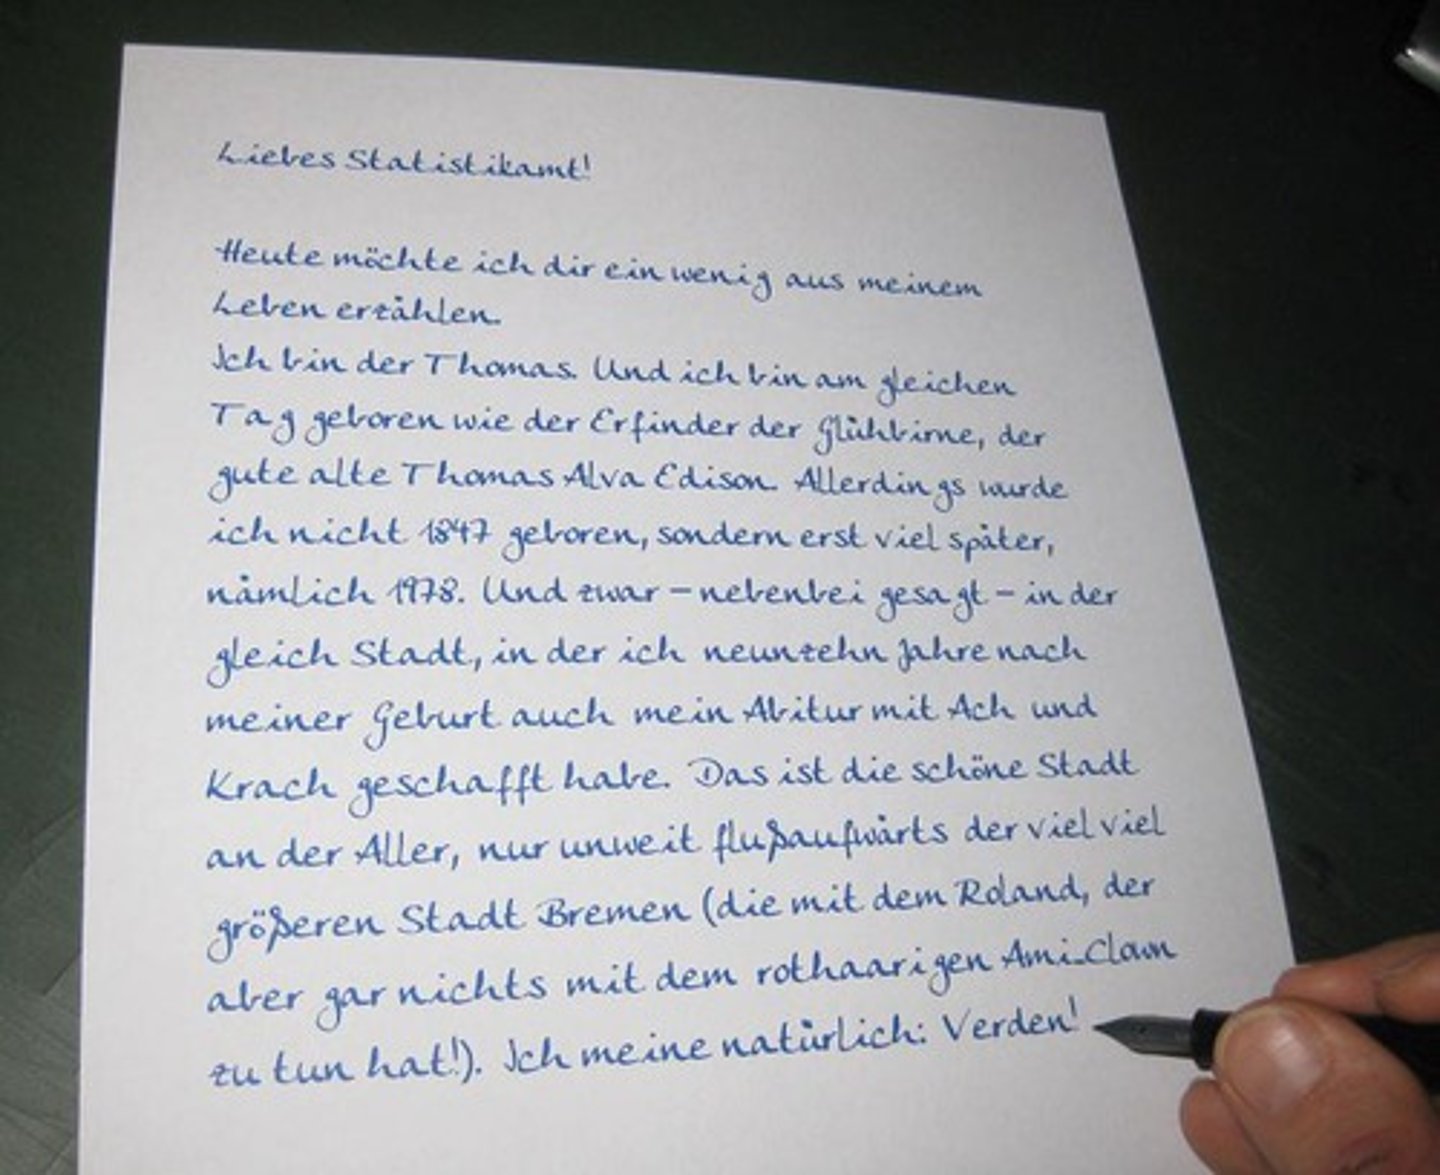 Liebes Statistikamt!
Heute möchte ich dir ein wenig aus meinem
Leben erzählen.
Ich bin der Thomas. Und ich bin am gleichen
Tag geboren wie der Erfinder der Glühbirne, der
gute alte Thomas Alva Edison. Allerdings wurde
ich nicht 1847 geboren, sondern erst viel später,
nämlich 1978. Und zwar – nebenbei gesagt – in der
gleich Stadt, in der ich neunzehn Jahre nach
meiner Geburt auch mein Abitur mit Ach und
Krach geschafft habe. Das ist die schöne Stadt
an der Aller, nur unweit flußaufwärts der viel viel
größeren Stadt Bremen (die mit dem Roland, der
aber gar nichts mit dem rothaarigen Ami-Clown
zu tun hat!). Ich meine natürlich: Verden!